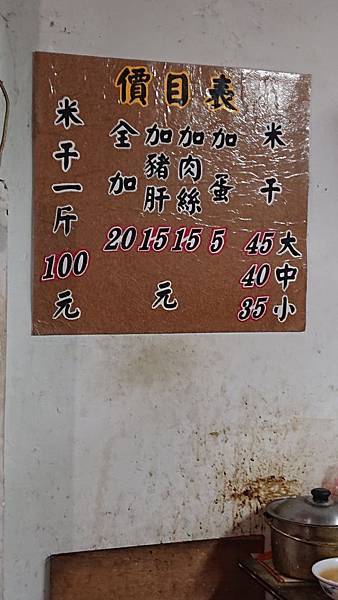 價目表
米干
大 45
中 40
小 35
加蛋 5
加肉絲 15
加豬肝 15
全加 20
元
米干一斤 100 元